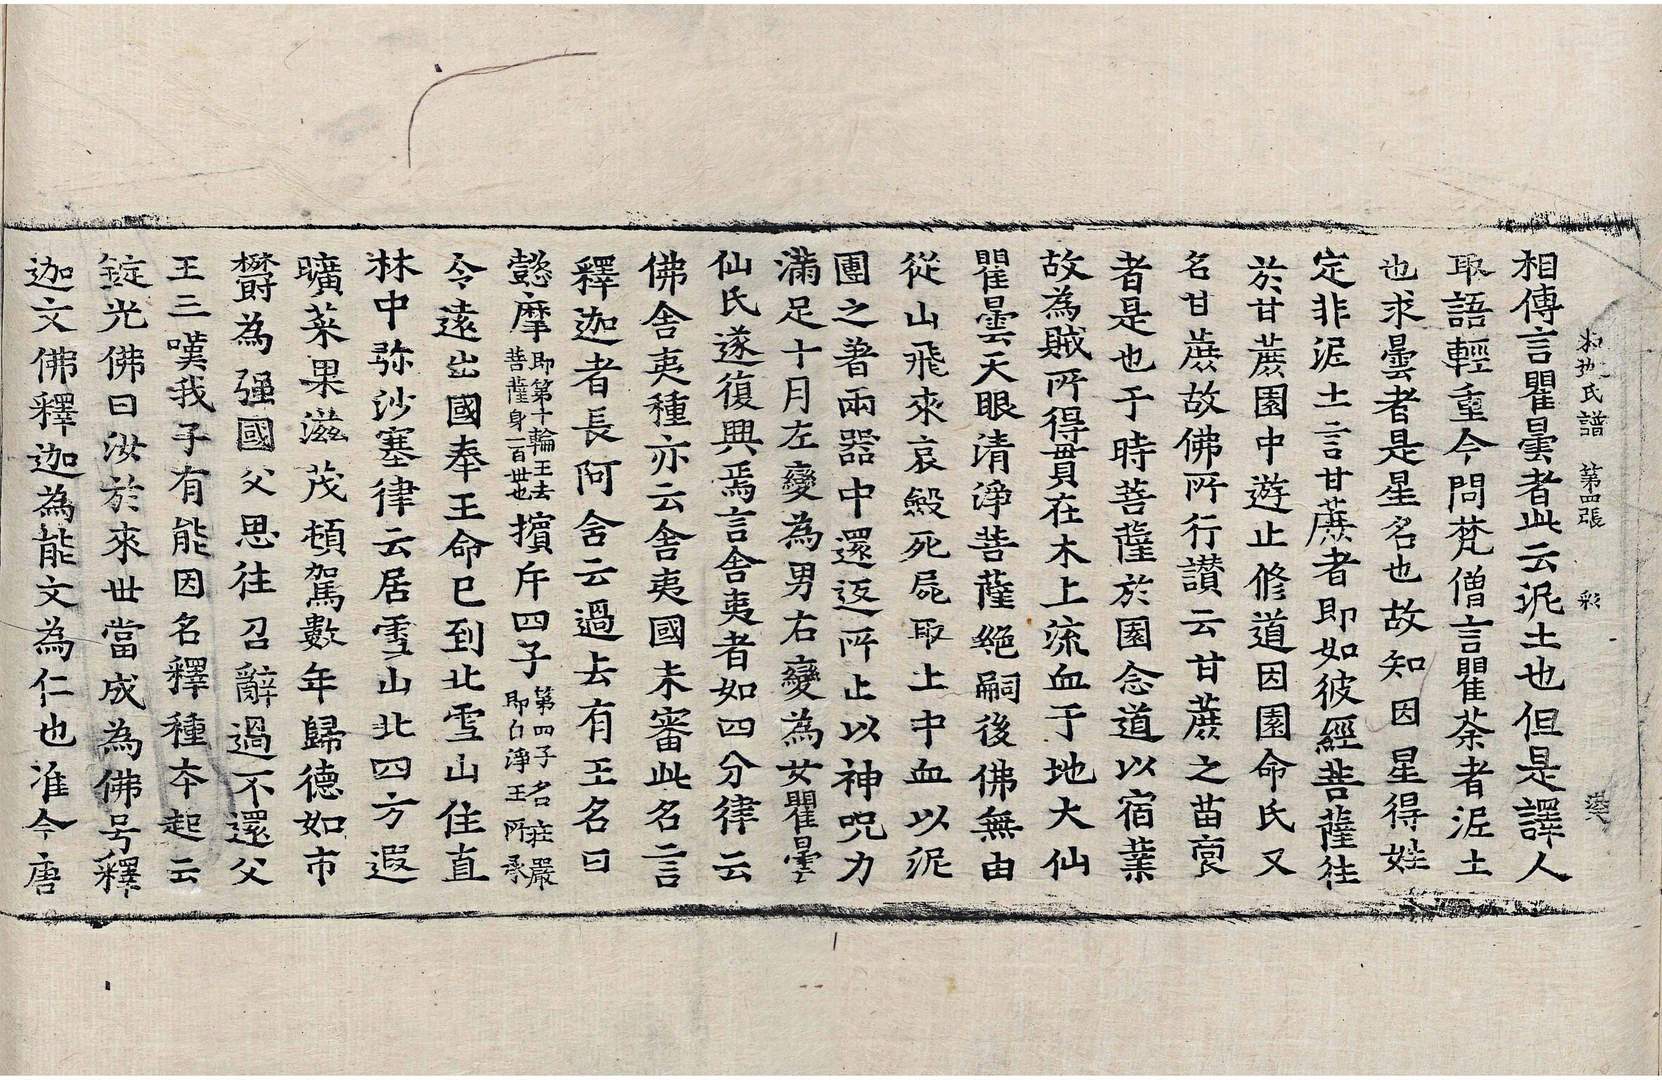 釋迦氏譜 第四張 彩
相傳言瞿曇者此云泥土也但是譯人
取語輕重今問梵僧言瞿荼者泥土
也求曇者是星名也故知因星得姓
定非泥土言甘蔗者即如彼經菩薩往
於甘蔗園中遊止修道因園命氏又
名甘蔗故佛所行讃云甘蔗之苗裔
者是也于時菩薩於園念道以宿業
故為賊所得貫在木上流血于地大仙
瞿曇天眼清淨菩薩絶嗣後佛無由
從山飛來哀殺死屍取上中血以泥
團之著兩器中還返所止以神呪力
滿足十月左變為男右變為女瞿曇
仙氏遂復興焉言舍夷者如四分律云
佛舍夷種亦云舍夷國未審此名言
釋迦者長阿舍云過去有王名曰
懿摩即第十輪王去菩薩身一百世也擯斥四子第四子名莊嚴即白淨王所承
令遠出國奉王命已到北雪山住直
林中弥沙塞律云居雪山北四方遐
曠菜果滋茂頓駕數年歸德如市
欝為强國父思往召辭過不還父
王三嘆我子有能因名釋種夲起云
錠光佛曰汝於來世當成為佛号釋
迦文佛釋迦為能文為仁也准今唐